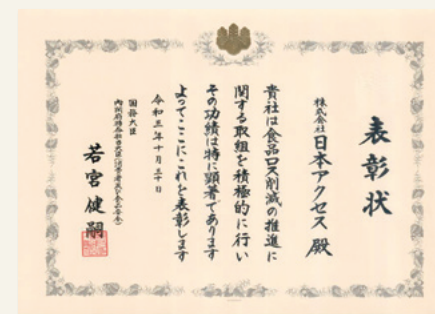 表彰状
株式会社日本アクセス 殿
貴社は食品ロス削減の推進に
関する取組を積極的に行い
その功績は特に顕著であります
よってここにこれを表彰します
令和三年十月三十日
国務大臣
内閣府特命担当大臣(消費者及び食品安全)
若宮健嗣